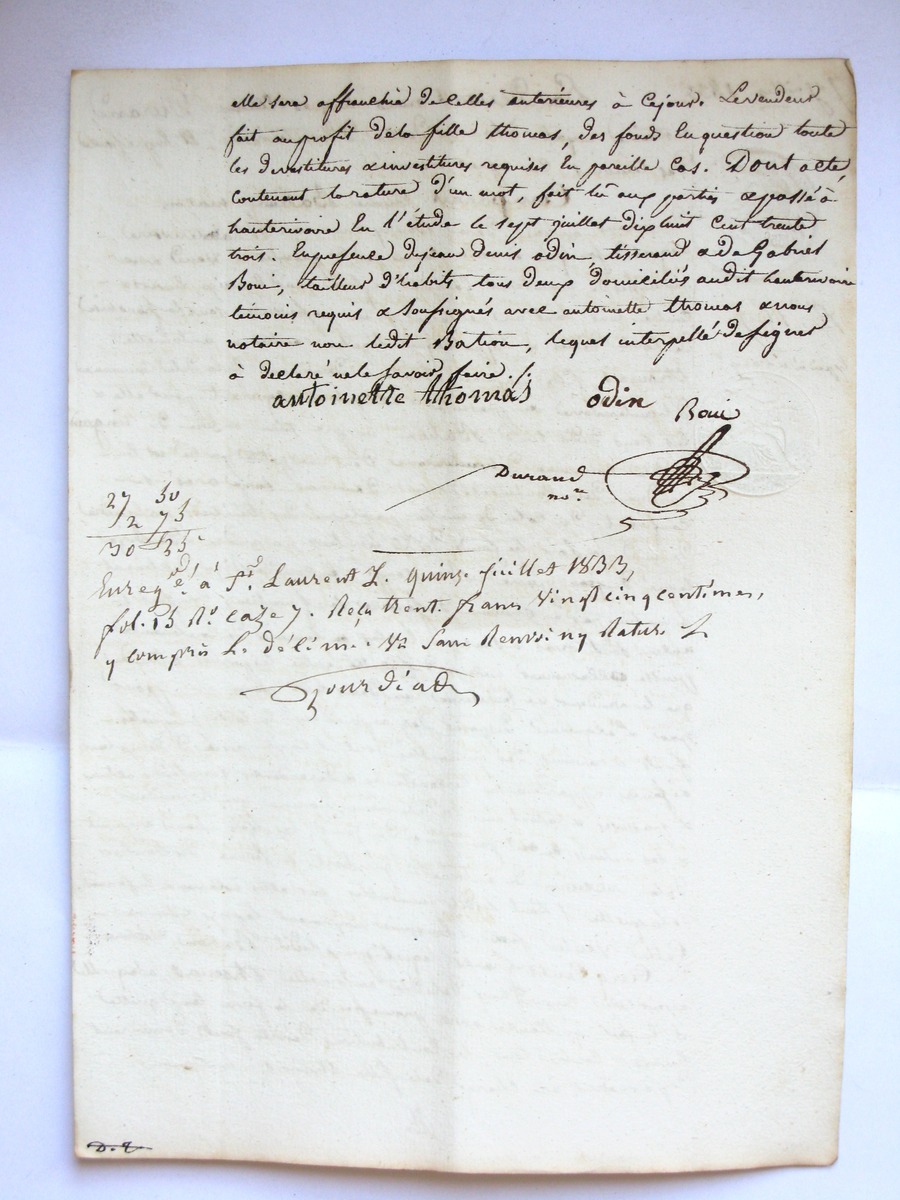 elle sera affranchie de celles antérieures à ce jour. Le vendeur
fait au profit de la fille thomas, des fonds en question toute
les devestitures & investitures requises en pareille cas. Dont acte,
contenant la rature d'un mot, fait lû aux parties & passé à
hauterivoire en l'étude le sept juillet dix huit cent trente
trois. En presence de jean denis odin, tisserand & de Gabriel
Boui, tailleur d'habits tous deux domiciliés audit hauterivoire
témoins requis & Soussignés avec antoinette thomas & nous
notaire non ledit Bation, lequel interpellé de signer
à déclaré ne le Savoir faire ./.
antoinette thomas odin Boui
Durand
nore
27 50
2 75
30 25
Enregé à St. Laurent L. quinze juillet 1833,
fol. 15 Ro caze 7. Reçu trente francs vingt cinq centimes,
y compris le décime. & Sans Renvoi ny Rature
Gourdiad
D. T